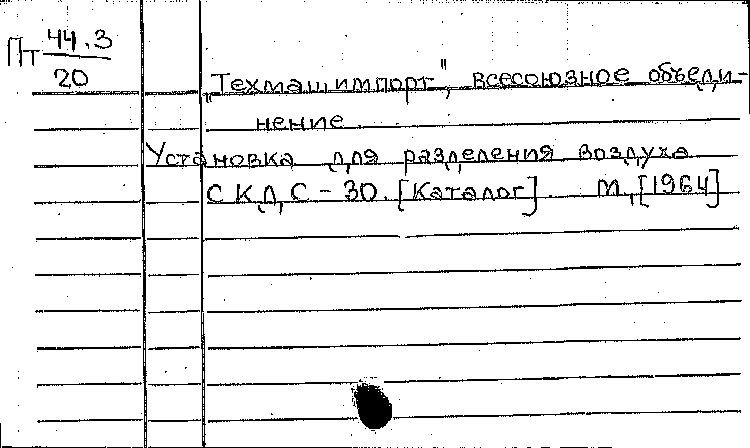 Пт 44.3
20
„Техмашимпорт", всесоюзное объеди-
нение
Установка для разделения воздуха
СКДС-30. [Каталог] М, [1964]